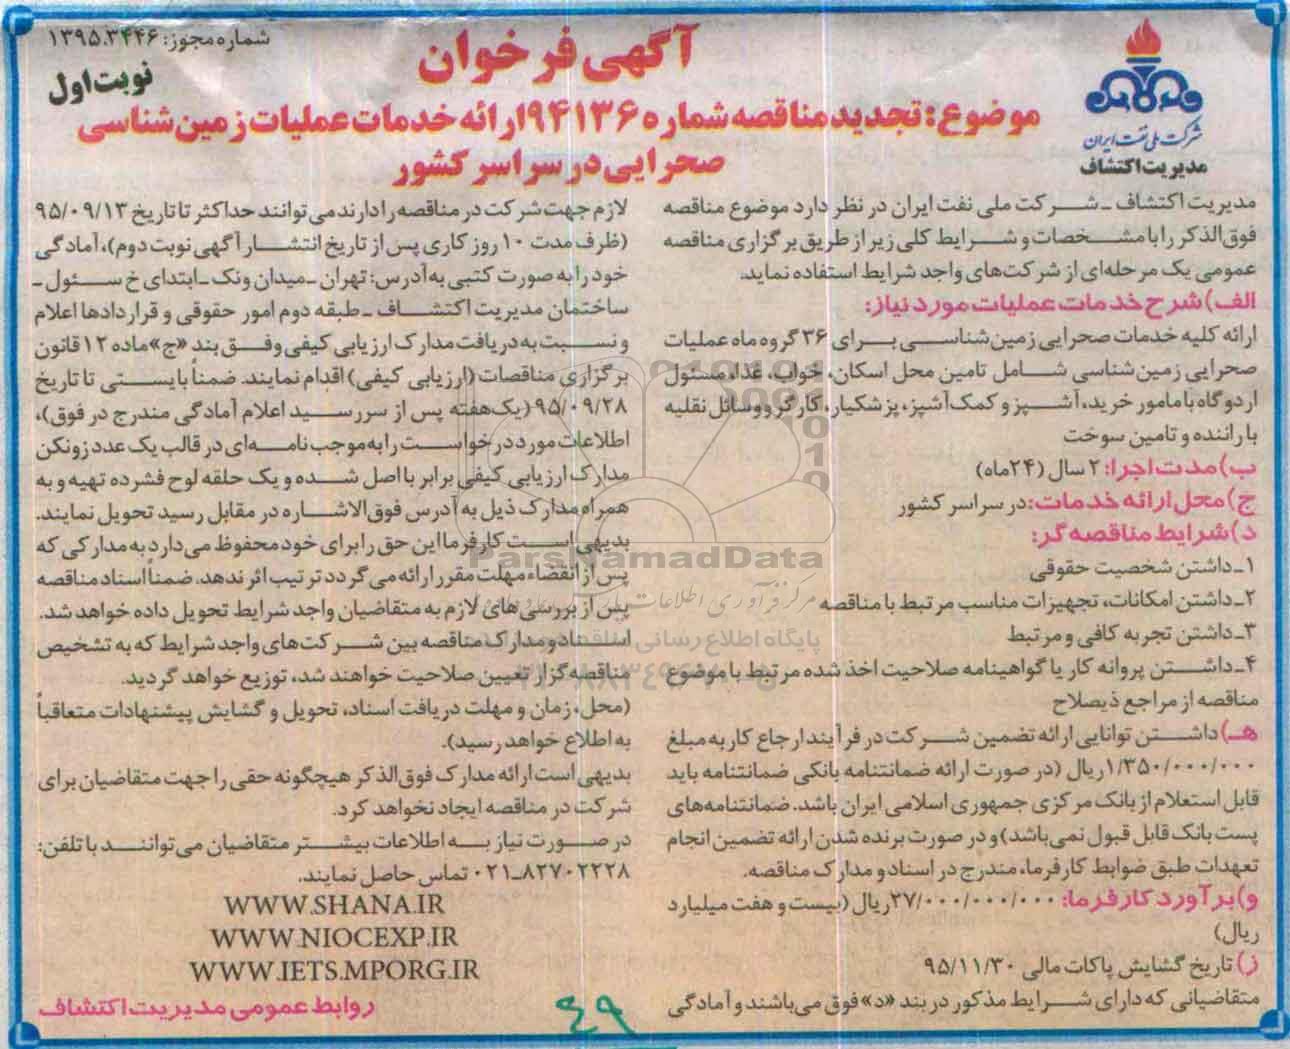 شماره مجوز: ۱۳۹۵.۳۴۴۶
نوبت اول
آگهی فرخوان
موضوع: تجدید مناقصه شماره ۹۴۱۳۶ ارائه خدمات عملیات زمین‌شناسی
صحرایی در سراسر کشور
شرکت ملی نفت ایران
مدیریت اکتشاف
مدیریت اکتشاف ـ شرکت ملی نفت ایران در نظر دارد موضوع مناقصه
فوق‌الذکر را با مشخصات و شرایط کلی زیر از طریق برگزاری مناقصه
عمومی یک مرحله‌ای از شرکت‌های واجد شرایط استفاده نماید.
الف) شرح خدمات عملیات مورد نیاز:
ارائه کلیه خدمات صحرایی زمین‌شناسی برای ۳۶ گروه ماه عملیات
صحرایی زمین‌شناسی شامل تامین محل اسکان، خواب، غذا، مسئول
اردوگاه با مامور خرید، آشپز و کمک آشپز، پزشکیار، کارگر و وسائل نقلیه
با راننده و تامین سوخت
ب) مدت اجرا: ۲ سال (۲۴ماه)
ج) محل ارائه خدمات: در سراسر کشور
د) شرایط مناقصه‌گر:
۱ـ داشتن شخصیت حقوقی
۲ـ داشتن امکانات، تجهیزات مناسب مرتبط با مناقصه
۳ـ داشتن تجربه کافی و مرتبط
۴ـ داشتن پروانه کار یا گواهینامه صلاحیت اخذ شده مرتبط با موضوع
مناقصه از مراجع ذیصلاح
هـ) داشتن توانایی ارائه تضمین شرکت در فرآیند ارجاع کار به مبلغ
۱/۳۵۰/۰۰۰/۰۰۰ریال (در صورت ارائه ضمانتنامه بانکی ضمانتنامه باید
قابل استعلام از بانک مرکزی جمهوری اسلامی ایران باشد. ضمانتنامه‌های
پست بانک قابل قبول نمی‌باشد) و در صورت برنده شدن ارائه تضمین انجام
تعهدات طبق ضوابط کارفرما، مندرج در اسناد و مدارک مناقصه.
و) برآورد کارفرما: ۲۷/۰۰۰/۰۰۰/۰۰۰ریال (بیست و هفت میلیارد
ریال)
ز) تاریخ گشایش پاکات مالی ۹۵/۱۱/۳۰
متقاضیانی که دارای شرایط مذکور در بند «د» فوق می‌باشند و آمادگی
لازم جهت شرکت در مناقصه را دارند می‌توانند حداکثر تا تاریخ ۹۵/۰۹/۱۳
(ظرف مدت ۱۰ روز کاری پس از تاریخ انتشار آگهی نوبت دوم)، آمادگی
خود را به صورت کتبی به آدرس: تهران ـ میدان ونک ـ ابتدای خ سئول ـ
ساختمان مدیریت اکتشاف ـ طبقه دوم امور حقوقی و قراردادها اعلام
و نسبت به دریافت مدارک ارزیابی کیفی وفق بند «ج» ماده ۱۲ قانون
برگزاری مناقصات (ارزیابی کیفی) اقدام نمایند. ضمناً بایستی تا تاریخ
۹۵/۰۹/۲۸ (یک هفته پس از سررسید اعلام آمادگی مندرج در فوق)،
اطلاعات مورد درخواست را به موجب نامه‌ای در قالب یک عدد زونکن
مدارک ارزیابی کیفی برابر با اصل شده و یک حلقه لوح فشرده تهیه و به
همراه مدارک ذیل به آدرس فوق‌الاشاره در مقابل رسید تحویل نمایند.
بدیهی است کارفرما این حق را برای خود محفوظ می‌دارد به مدارکی که
پس از انقضاء مهلت مقرر ارائه می‌گردد ترتیب اثر ندهد. ضمناً اسناد مناقصه
پس از بررسی‌های لازم به متقاضیان واجد شرایط تحویل داده خواهد شد.
اسناد و مدارک مناقصه بین شرکت‌های واجد شرایط که به تشخیص
مناقصه‌گزار تعیین صلاحیت خواهند شد، توزیع خواهد گردید.
(محل، زمان و مهلت دریافت اسناد، تحویل و گشایش پیشنهادات متعاقباً
به اطلاع خواهد رسید).
بدیهی است ارائه مدارک فوق‌الذکر هیچگونه حقی را جهت متقاضیان برای
شرکت در مناقصه ایجاد نخواهد کرد.
در صورت نیاز به اطلاعات بیشتر متقاضیان می‌توانند با تلفن:
۰۲۱-۸۲۷۰۲۲۲۸ تماس حاصل نمایند.
WWW.SHANA.IR
WWW.NIOCEXP.IR
WWW.IETS.MPORG.IR
روابط عمومی مدیریت اکتشاف
۴۹
ParsNamadData
پایگاه اطلاع رسانی